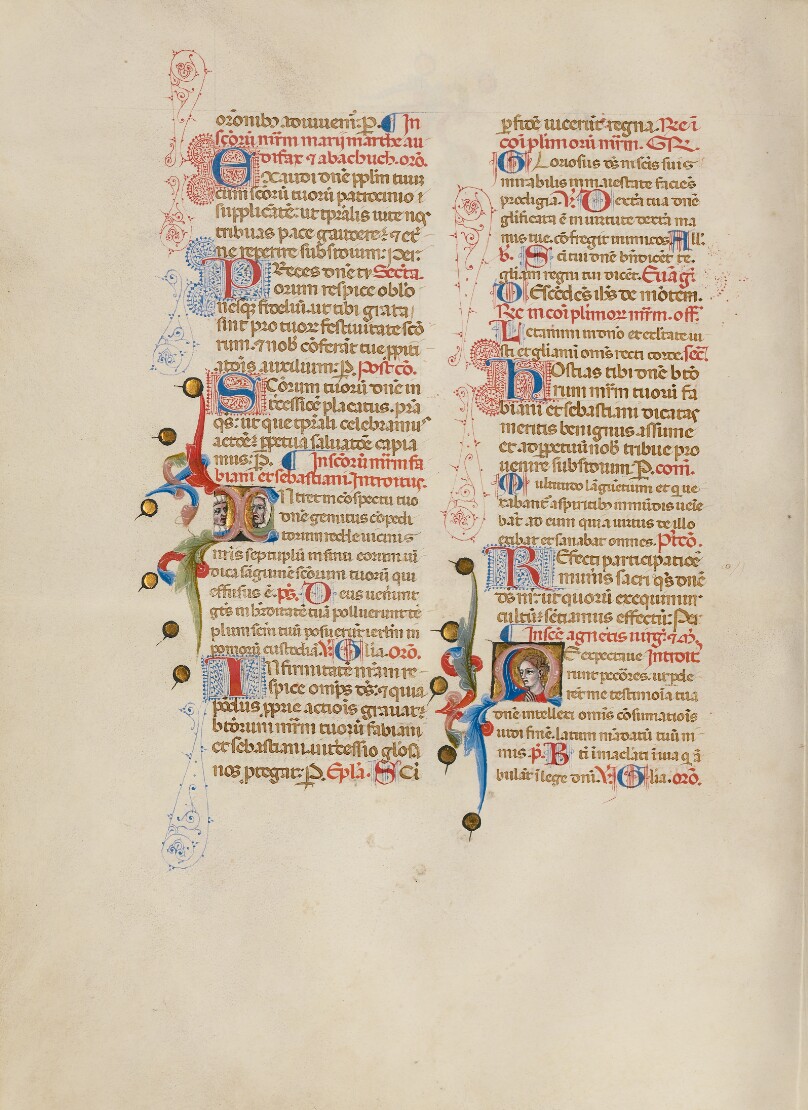 orōnibȝ adiuvemᷣ. P. ¶ In
scōrū mr̄m marij marthe au
difax ⁊ abachuch. orō.
EXaudi dn̄e pplm̄ tuū
cum scōrū tuorū patrocinio
supplicātē: ut tp̄ralis uite nos
tribuas pace gaudere: ⁊ et̄
ne reperire subsidium: Per.
PReces dn̄e tr̄ Secreta
orum respice oblo
neſqȝ fidelium. ut tibi grata
sint pro tuoꝝ festiuitate scō
rum. ⁊ nob̄ cōferāt tue ppiti
atōis auxilium: P. Postcō.
SCōrum tuorū dn̄e in
tercessiōē placatus. pr̄a
qs̄. ut que tp̄rali celebramus
actōe: ppetua saluatōe capia
mus: P. ¶ In scōrū mr̄m fa
biani et sebastiani. Introitus.
INtret in cōspectu tuo
dn̄e gemitus cōpedi
torum redde uicinis
nr̄is septuplū in sinu eorum uī
dica sāguinē scōrum tuorū qui
effusus ē. ps̄. Deus uenerunt
gētes in hereditatē tuā polluerunt tē
plum scm̄ tuū posuerūt ierlm̄ in
pomorū custodiā. V. Glia. orō.
INfirmitatē nr̄am re
spice omīps ds̄: ⁊ quia
pōdus pprie actiōis grauat:
btōrum mr̄m tuorū fabiani
et sebastiani. intercessio gloā
nos protegat. P. Epl̄a. Sci
p fidē uicerūt regna. Re ī
cōi plimorū mr̄m. GR.
GLoriosus ds̄ in scīs suis
mirabilis in maiestate faciēs
prodigia. V. Dextra tua dn̄e
glificata ē in uirtute dextra ma
nus tue. cōfregit inimicos. All.
V. Scī tui dn̄e bn̄dicēt te.
gliam regni tui dicēt. Euāgl
DEscēdēs ihs̄ de mōtem.
Re in cōi plimoꝝ mr̄m. off.
Letamini in dn̄o et exultate iu
sti et gliamī omīs recti corde. sec̄
HOstias tibi dn̄e btō
rum mr̄m tuorū fa
biani et sebastiani dicatas
meritis benignus assume
et ad ppetuū nob̄ tribue pro
uenire subsidium. P. com̄.
Multitudo lāguētum et que
xabant᷑ a spiritibȝ immūdis uēie
bāt ad eum quia uirtus de illo
exibat et sanabat omnes. Ptcō.
REfecti participatiōe
muneris sacri qs̄ dn̄e
ds̄ nr̄. ut quorū exequimur
cultū: sētiamus effectū: Per
¶ In sc̄e agnetis uirg̅. ⁊ m̄.
ME expectaue Introit᷑
runt pctōres. ut pde
rēt me testimōia tua
dn̄e intellexi omīs cōsumatiōis
uidi finē. latum mādatū tuū ni
mis. p̄. Bti īmaclati ī uia q̄ ā
bulāt ī lege dnī. V. Glia. orō.